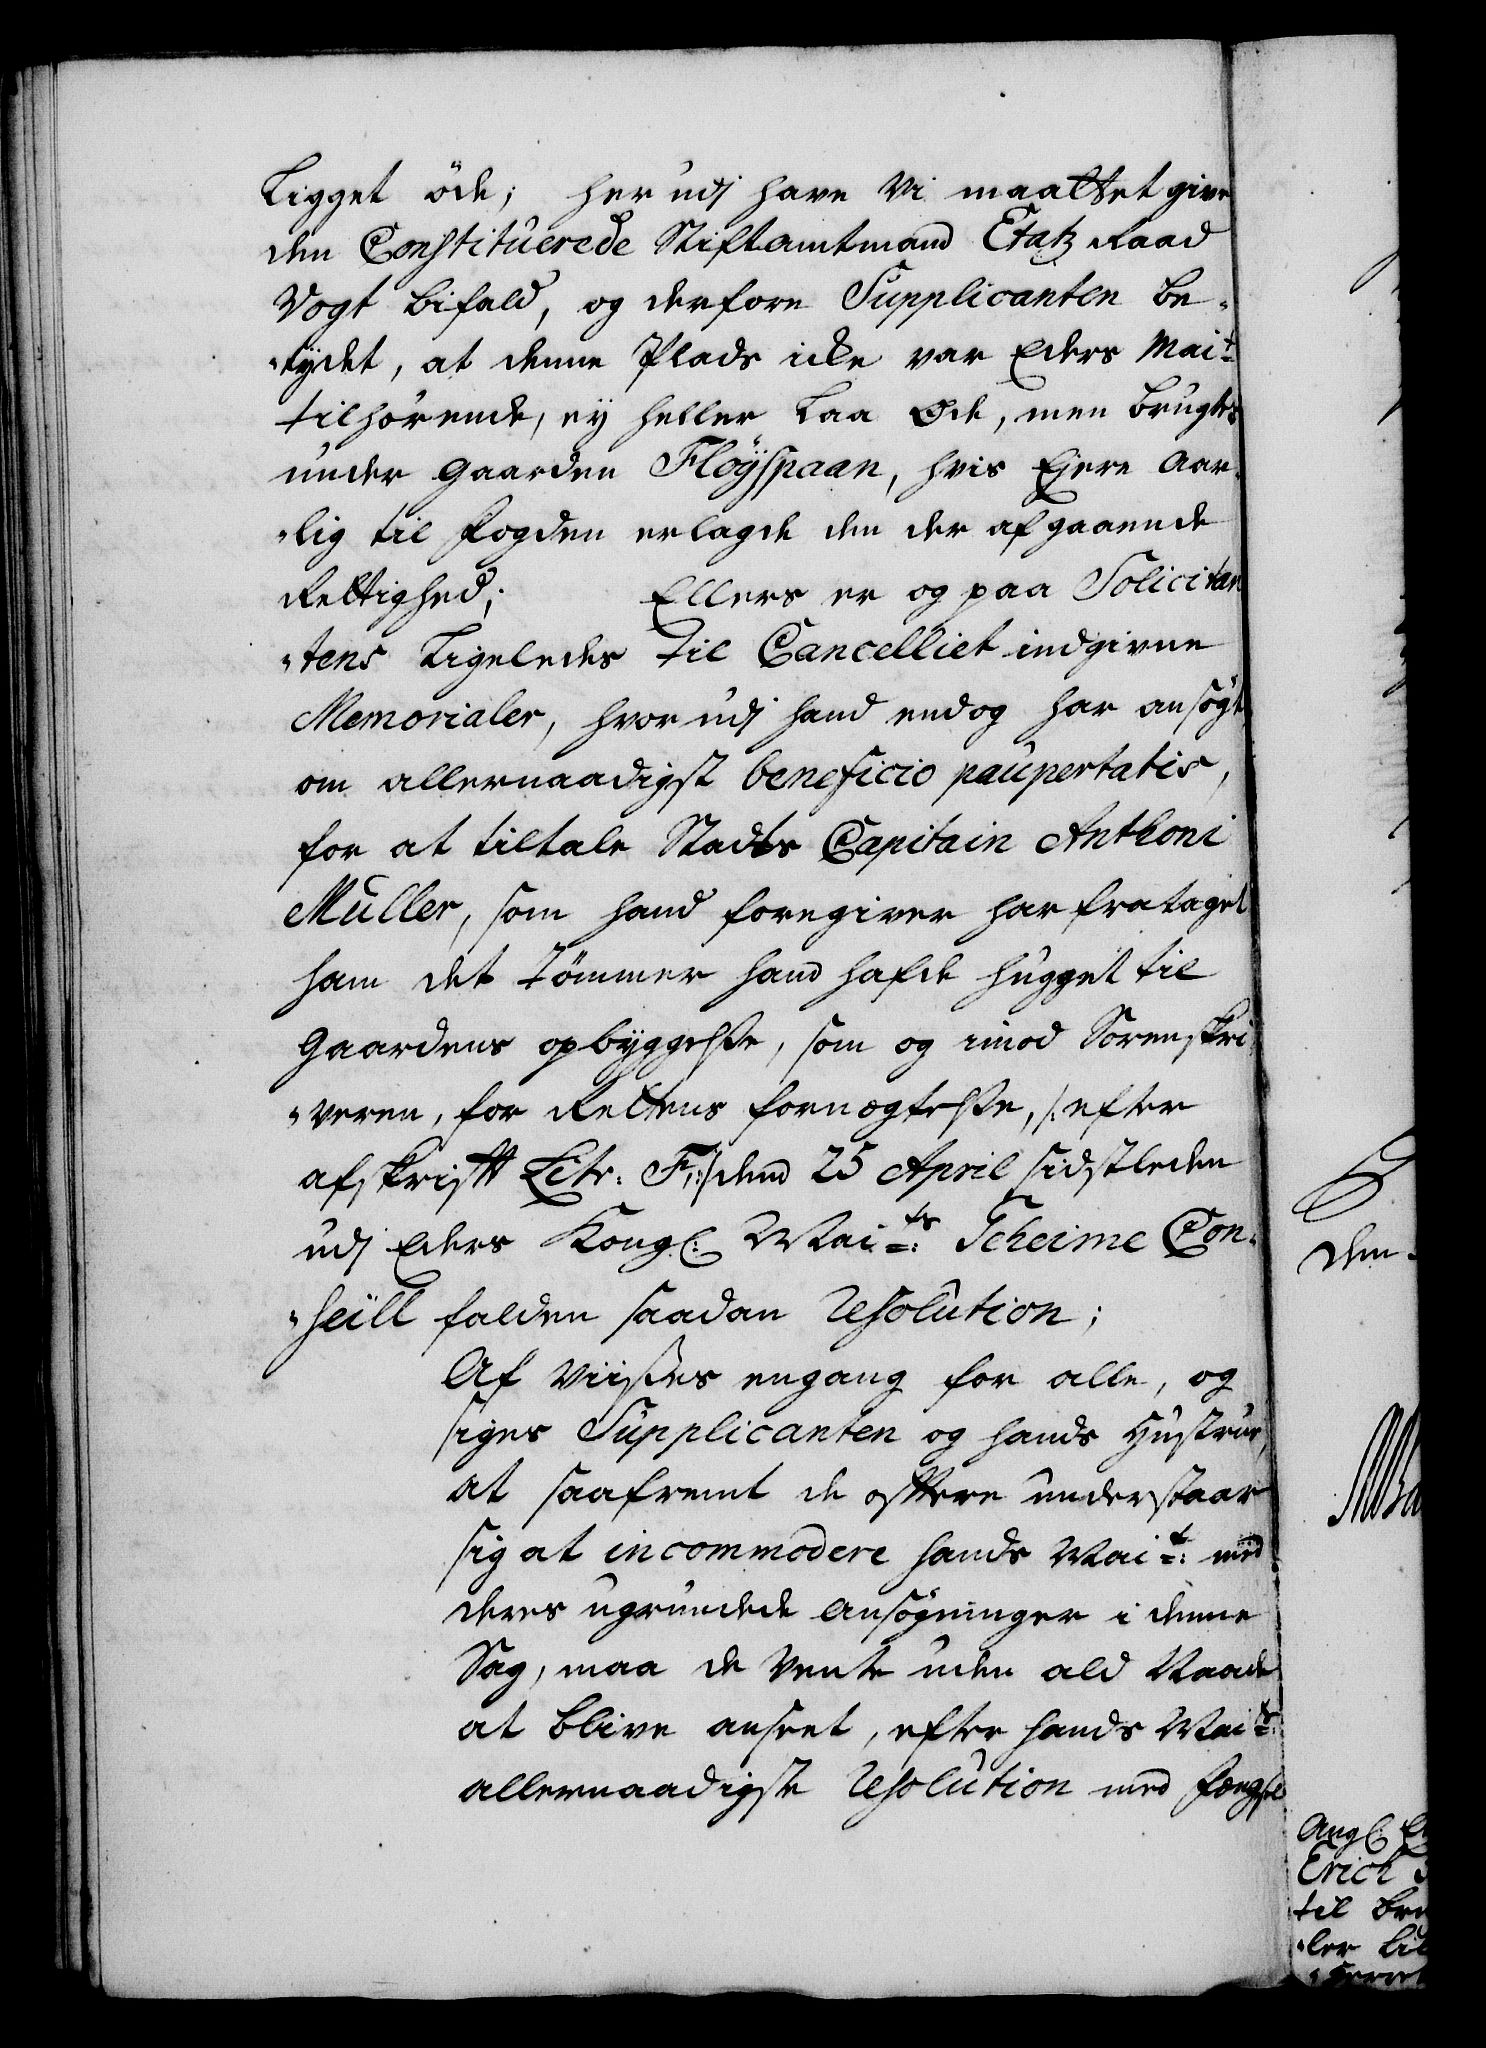 Ligget öde; her udj have Vi maattet give
den Constituerede Stiftamtmand Etatz Raad
Vogt bifald, og derfore Supplicanten be-
-tydet, at denne Plads icke var Eders Mait:
tilhörende, ey heller Laa Öde, men brugtes
under Gaarden Flöÿspaan, hvis Ejere Aar-
-lig til fogden erlagde den der afgaaende
Rettighed; Ellers er og paa Solicitan
-tens Ligeledes til Cancelliet indgivne
Memorialer, hvor udj hand endog har ansögt
om allernaadigst beneficio paupertatis,
for at tiltale Stadts Capitain Anthoni
Müller, som hand foregiver har frataget
ham det Tömmer hand hafde hugget til
Gaardens opbÿggelsse, som og imod Sorenskri
-veren, for Rettens fornægtelsse, /: efter
afskrifft Litr: F, :/ dend 25 April sidstleden
udj Eders Kongl: Maits: Geheime Con-
-seill falden saadan Resolution;
Af viisses engang for alle, og
siges Supplicanten og hands Hustrue,
at saafremt de offtere understaar
sig at incommodere hands Mait: med
deres ugrundede Ansögninger i denne
Sag, maa de vente uden ald Naade
at blive anseet, efter hands Maits:
allernaadigste Resolution med fængsel
den-
Angl:
Erich
til